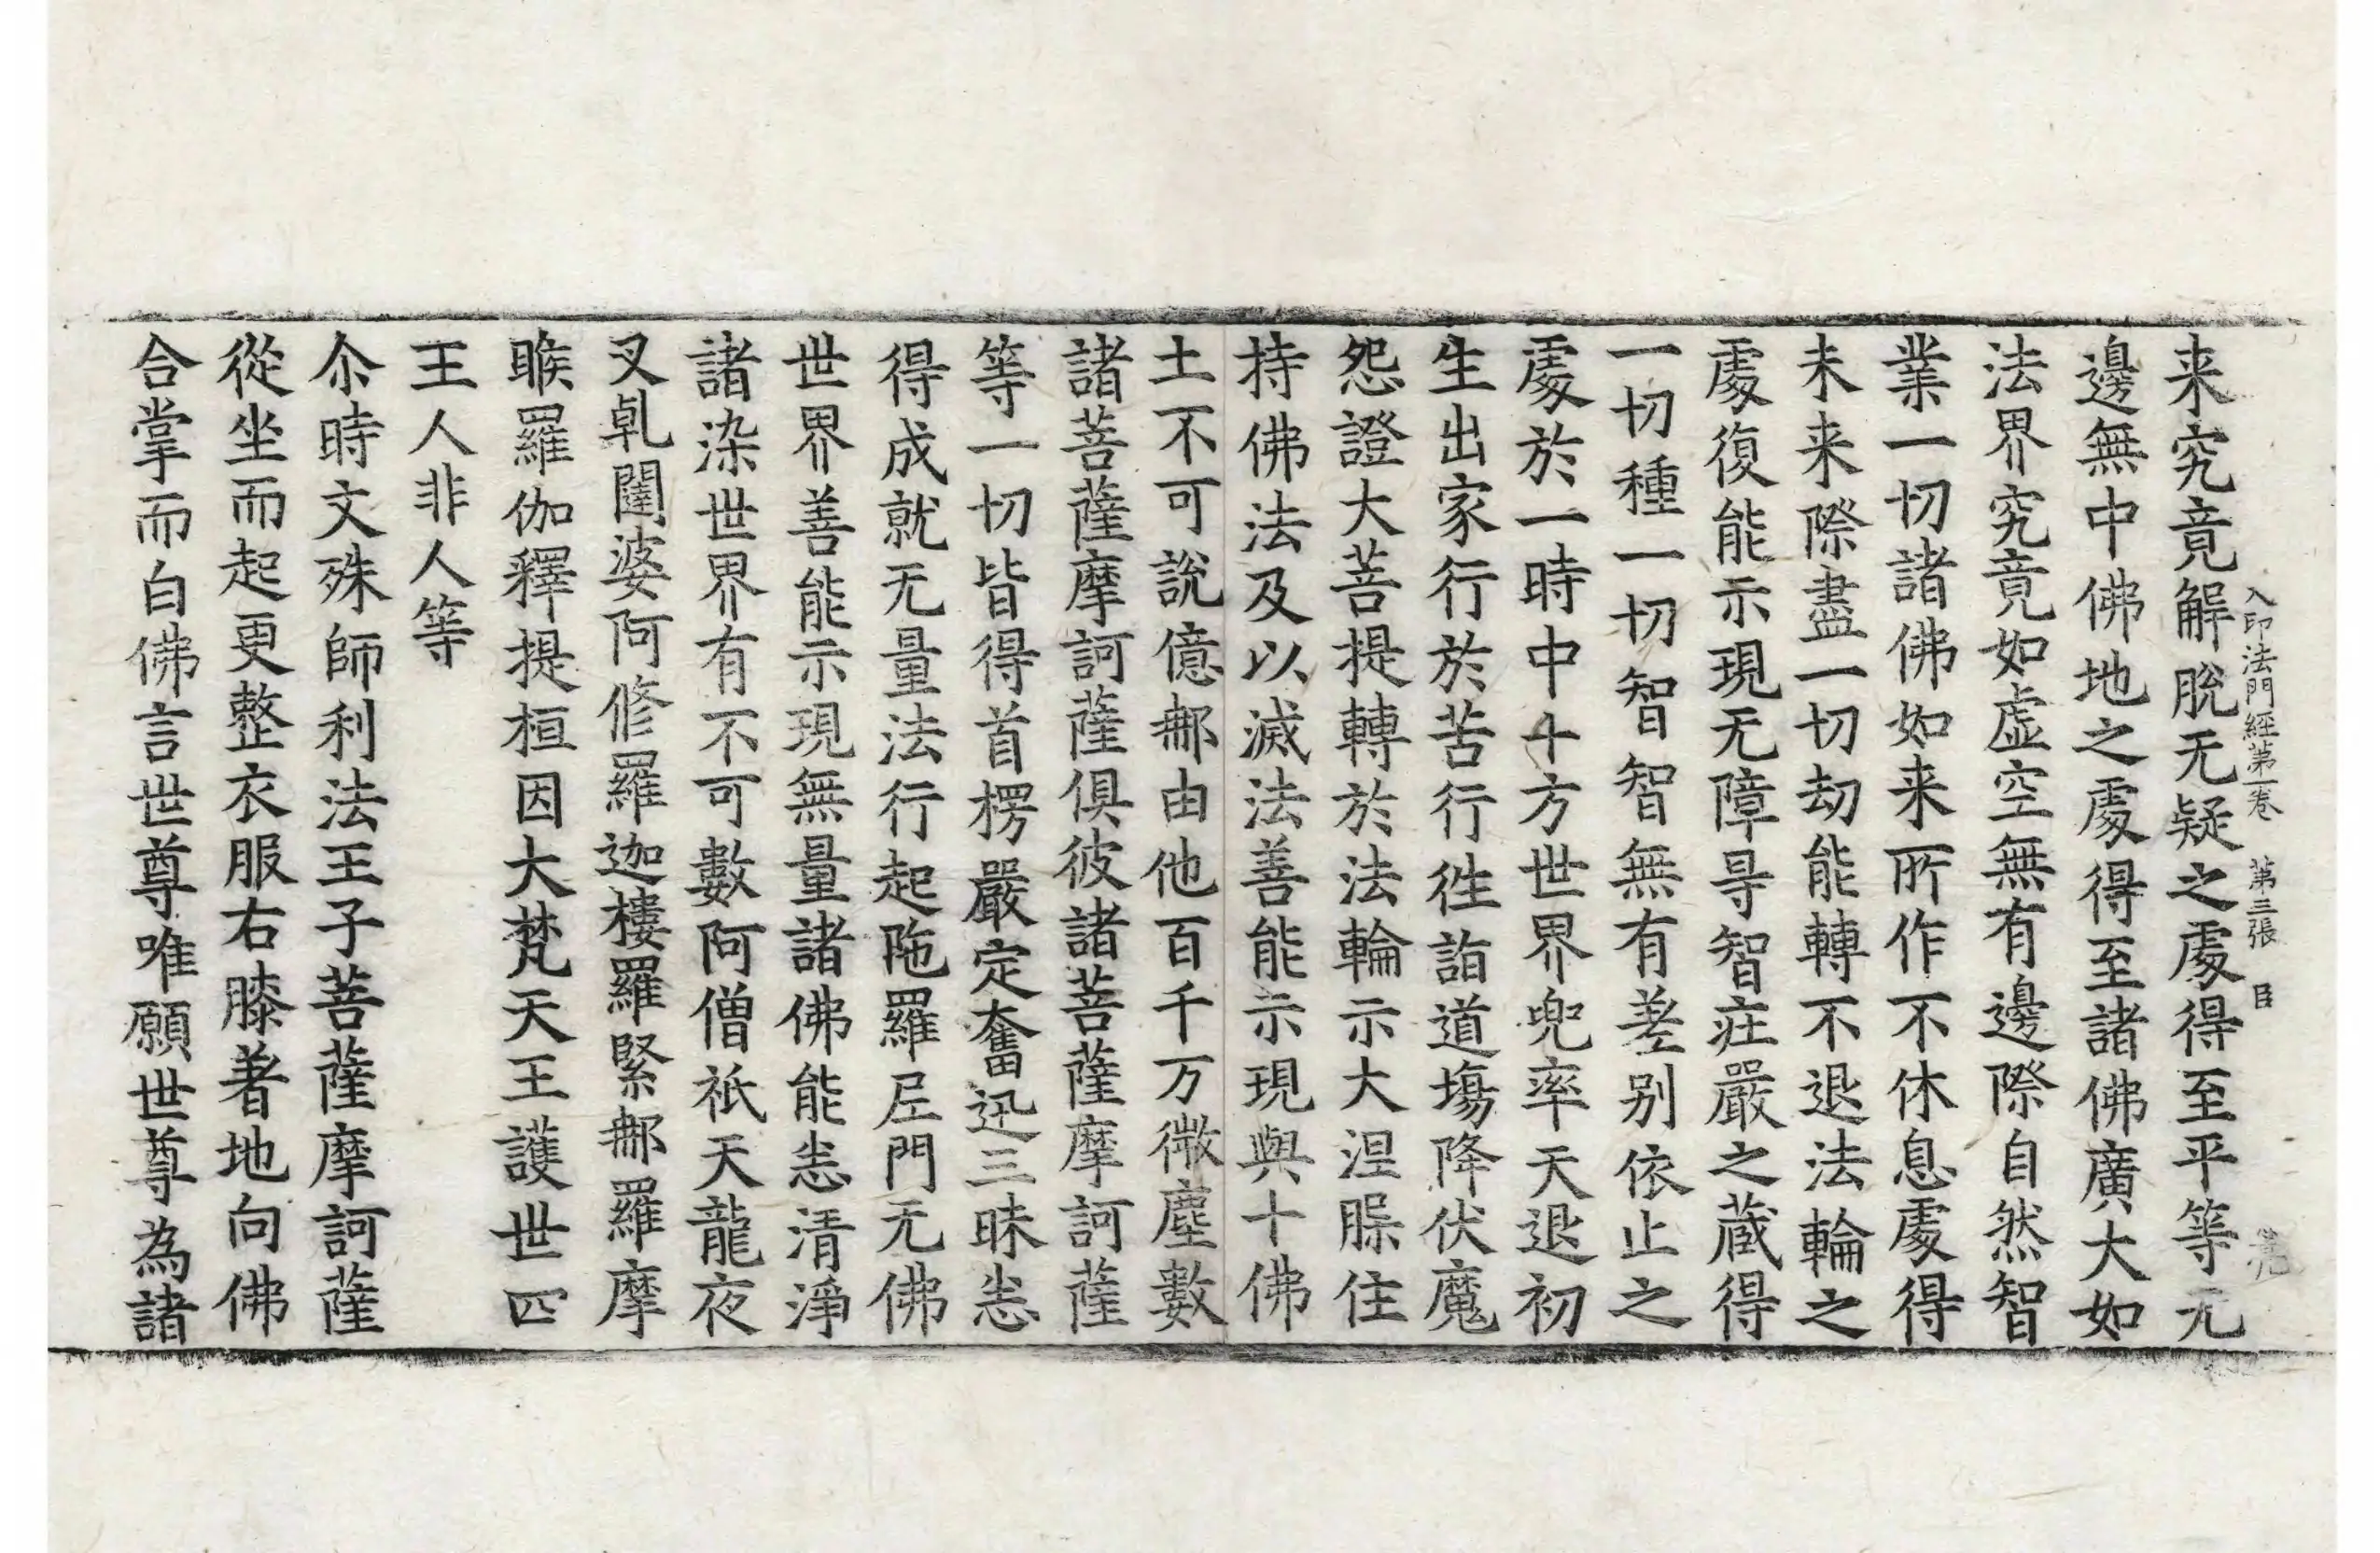 入印法門經第一卷 第三張 臣
来究竟解脫无疑之䖏得至平等无
邊無中佛地之䖏得至諸佛廣大如
法界究竟如虛空無有邊際自然智
業一切諸佛如来所作不休息䖏得
未来際盡一切劫能轉不退法輪之
䖏復能示現无障㝵智莊嚴之蔵得
一切種一切智智無有差别依止之
䖏於一時中十方世界兜率天退初
生出家行於苦行往詣道場降伏魔
怨證大菩提轉於法輪示大涅槃住
持佛法及以滅法善能示現與十佛
土不可說億那由他百千万微塵數
諸菩薩摩訶薩俱彼諸菩薩摩訶薩
等一切皆得首楞嚴定奮迅三昧悉
得成就无量法行起陁羅尼門无佛
世界善能示現無量諸佛能悉清淨
諸染世界有不可數阿僧祇天龍夜
叉乹闥婆阿修羅迦樓羅緊那羅摩
睺羅伽釋提桓因大梵天王護世四
王人非人等
尒時文殊師利法王子菩薩摩訶薩
從坐而起更整衣服右膝著地向佛
合掌而白佛言世尊唯願世尊為諸